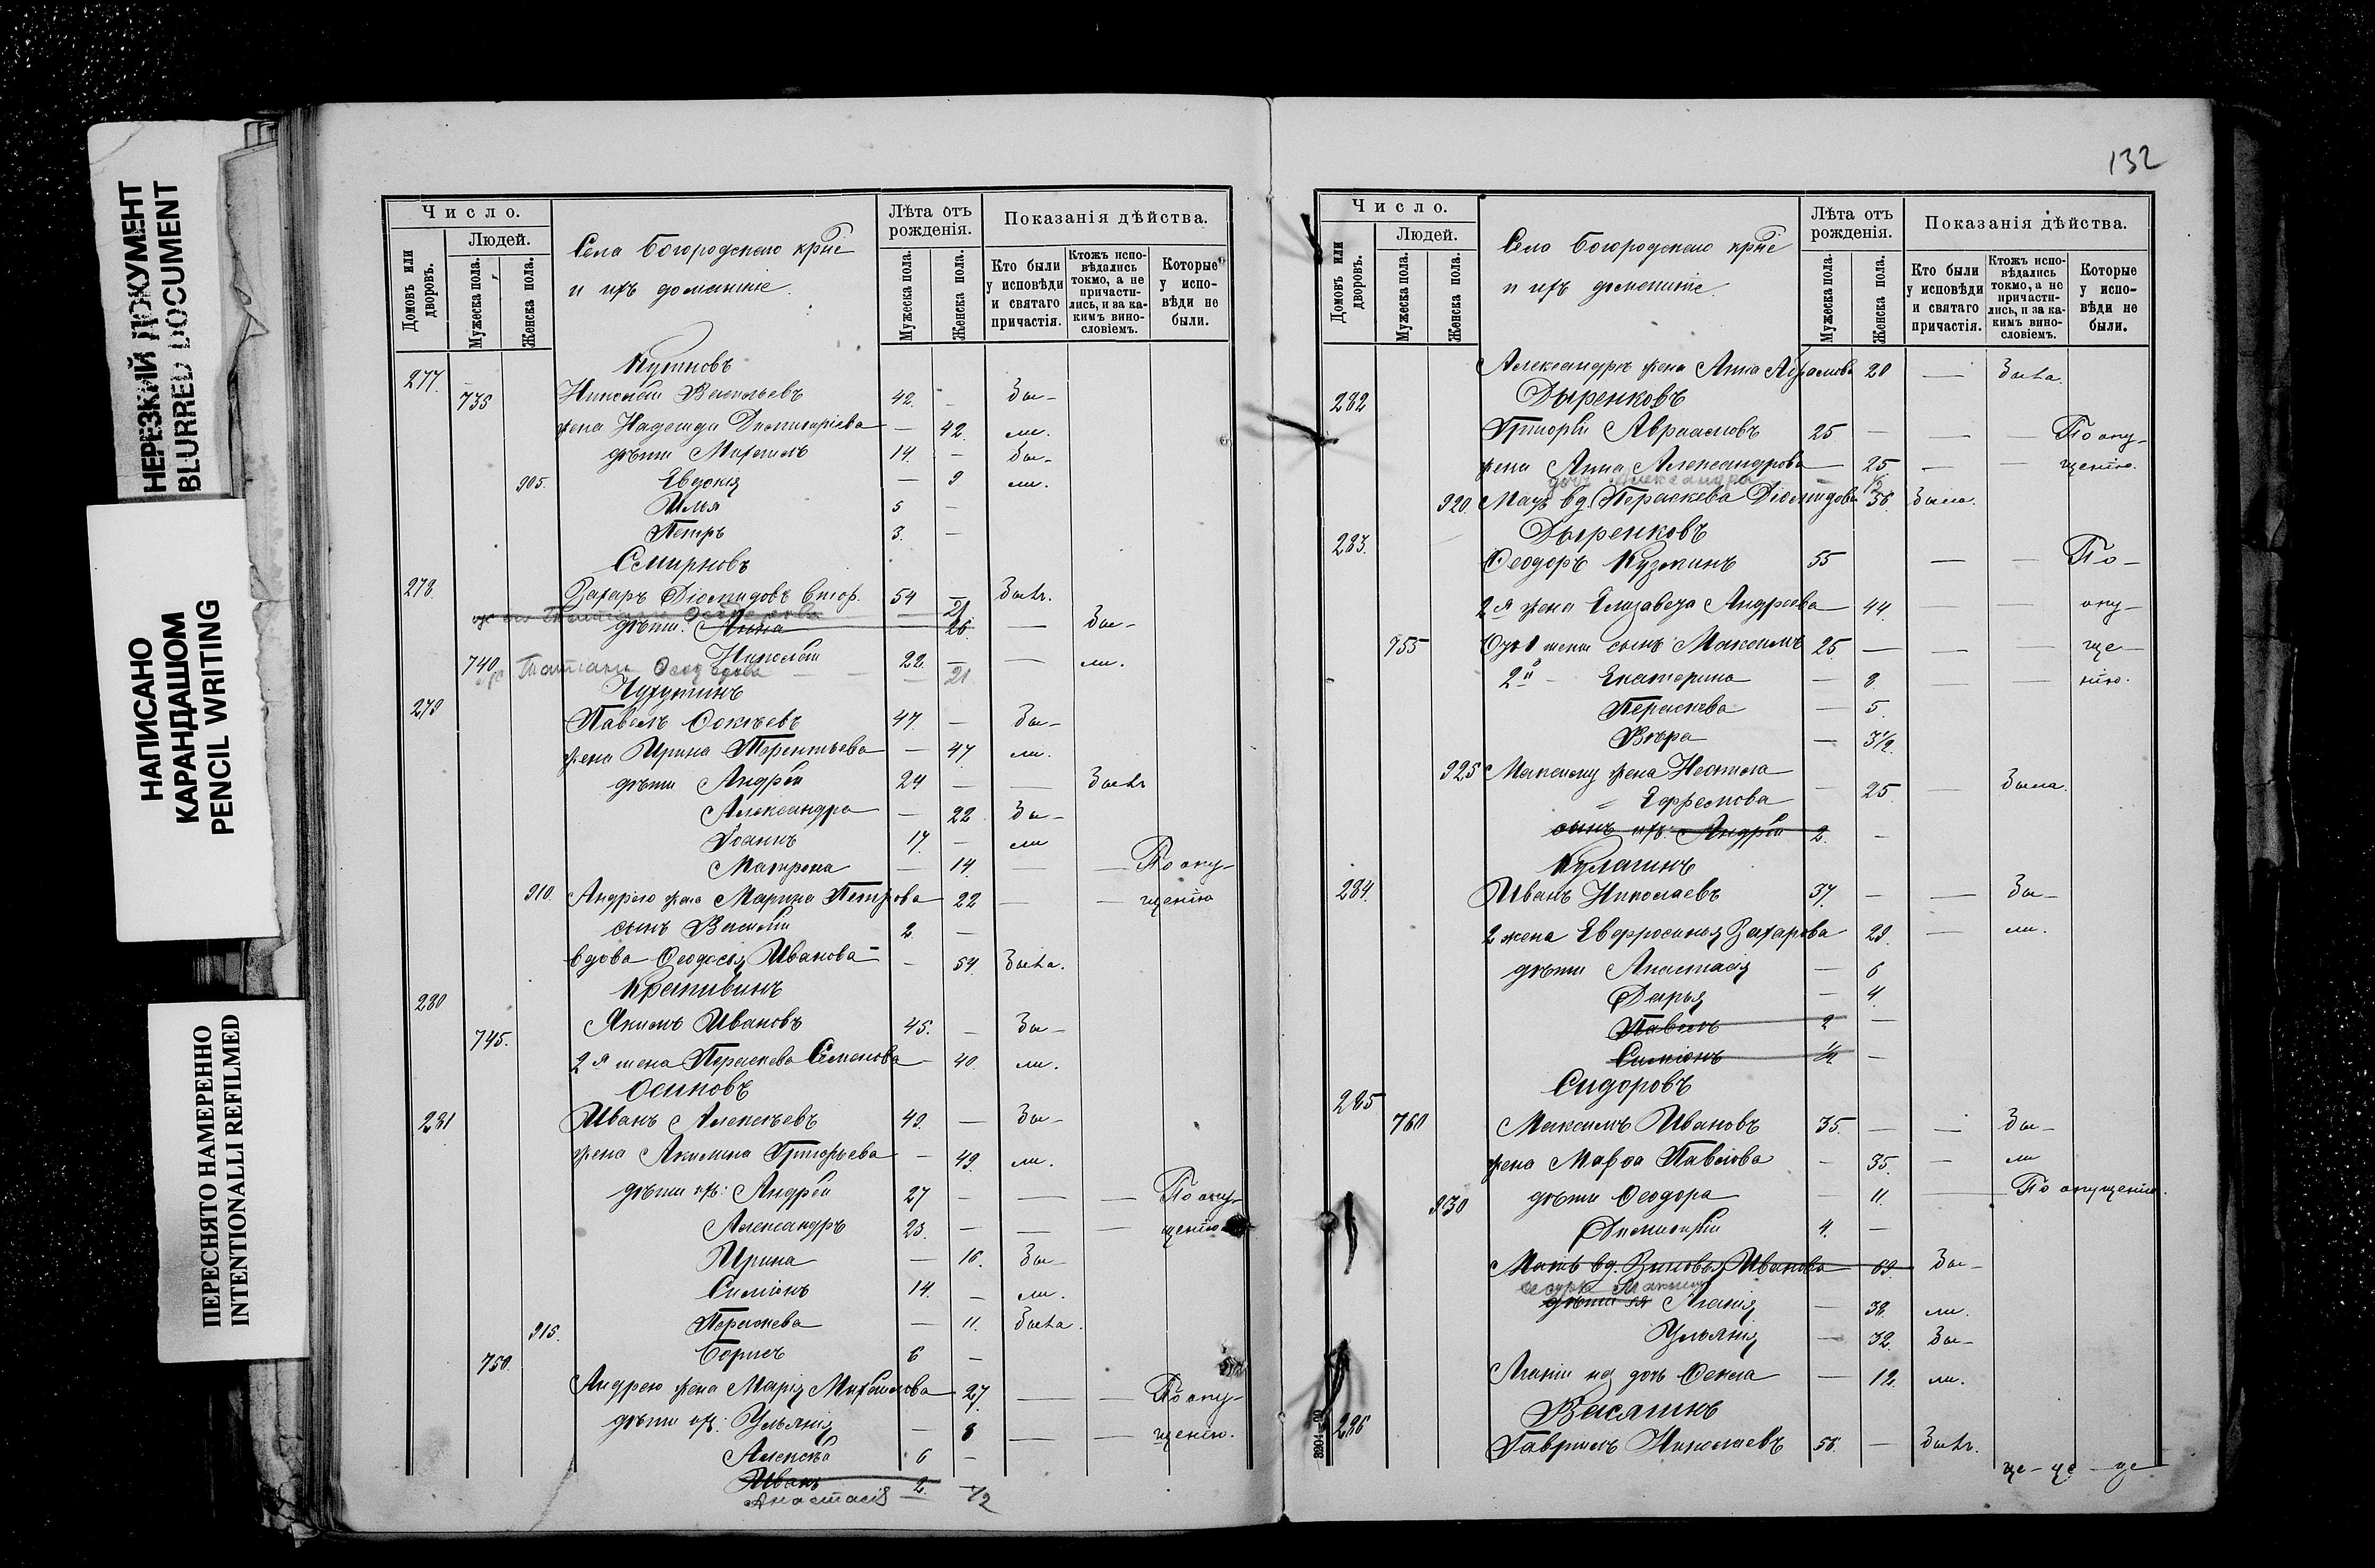 НЕРЕЗКИЙ ДОКУМЕНТ
BLURRED DOCUMENT
НАПИСАНО
КАРАНДАШОМ
PENCIL WRITING
ПЕРЕСНЯТО НАМЕРЕННО
INTENTIONALLI REFILMED
Число.
Домовъ или дворовъ.
Людей.
Мужеска пола.
Женска пола.
Села Богородскаго крте
и ихъ домашніе.
Лѣта отъ рожденія.
Мужеска пола.
Женска пола.
Показанія дѣйства.
Кто были у исповѣди и святаго причастія.
Ктожъ исповѣдались токмо, а не причастились, и за какимъ винословіемъ.
Которые у исповѣди не были.
277.
738 Николай Васильевъ 42. — Бы-
жена Надежда Димитріева — 42. ли.
дѣти Михаилъ 14. — Бы-
905. Евдокія — 9 ли.
Илья 5 —
Петръ 3. —
Смирновъ
278. Захаръ Діомидовъ втор. 54 — Былъ.
21
дѣти: Анна — 26. — Бы-
740 Николай 22. — — ли.
Татіана 21
279
Павелъ 47. — Бы-
жена Ирина Терентьева — 47. ли.
дѣти Андрей 24 — — Былъ
Александра — 22 Бы-
Іоаннъ 17. — ли
Матрона — 14. — — По опу-
910. Андрею жена Марина Петрова — 22 — — щенію
сынъ Василій 2. —
вдова Ѳеодосія Иванова — 54. Была.
280 Крапивинъ
745. Якимъ Ивановъ 45. — Бы-
2я жена Параскева Семенова — 40. ли.
Осиповъ
281 Иванъ Алексѣевъ 49. — Бы-
жена Акилина Григорьева — 49. ли.
дѣти ихъ: Андрей 27 — — — По опу-
Александръ 23. — — — щенію
Ирина — 16. Бы-
Симіонъ 14. — ли.
915. Параскева — 11. Была.
750. Борисъ 6 —
Андрею жена Марія Михайлова 27. — — По опу-
дѣти ихъ: Ульянія — 8 — — щенію.
Алексѣй 6 —
Иванъ 2.
Анастасія — 1/2
132
Число.
Домовъ или дворовъ.
Людей.
Мужеска пола.
Женска пола.
Село Богородскаго крте
и ихъ домашніе.
Лѣта отъ рожденія.
Мужеска пола.
Женска пола.
Показанія дѣйства.
Кто были у исповѣди и святаго причастія.
Ктожъ исповѣдались токмо, а не причастились, и за какимъ винословіемъ.
Которые у исповѣди не были.
Александръ жена Анна Абрамова 20 — Была.
282 Дыренковъ
Григорій Авраамовъ 25 — — — По опу-
жена Анна Александрова — 25 — — щенію.
дочь Александра — 1/2
920. Мать вд. Параскева Діомидова 58. Была.
283. Дыренковъ
Ѳеодоръ Кузминъ 55 — — По-
2я жена Елизавета Андреева — 44. — опу-
755 жены сынъ Максимъ 25. — — — ще-
2й — Екатерина — 8. — — нію.
Параскева — 5.
Вѣра — 3½.
925 Максиму жена Неонила
Ефремова — 25. — Была.
сынъ ихъ: Андрей 2. —
284. Кулагинъ
Иванъ Николаевъ 37. — — Бы-
2 жена Евфросинія Захарова 29. — ли.
дѣти Анастасія — 6
Дарья — 4.
Павелъ 2 —
Симіонъ ½ —
285 Сидоровъ
760 Максимъ Ивановъ 35. — — Бы-
жена Марѳа Павлова — 35. — ли
930 дѣти Ѳеодора — 11. — По опущенію.
Димитрій 4. —
Мать вд. Зиновья Иванова 69. Бы-
дѣти ея Агапія — 38. ли.
Ульянія — 32. Бы-
Агапіи дочь Ѳекла — 12. ли.
Васягинъ
286 Гавріилъ Николаевъ 58. — Былъ.
3204—90